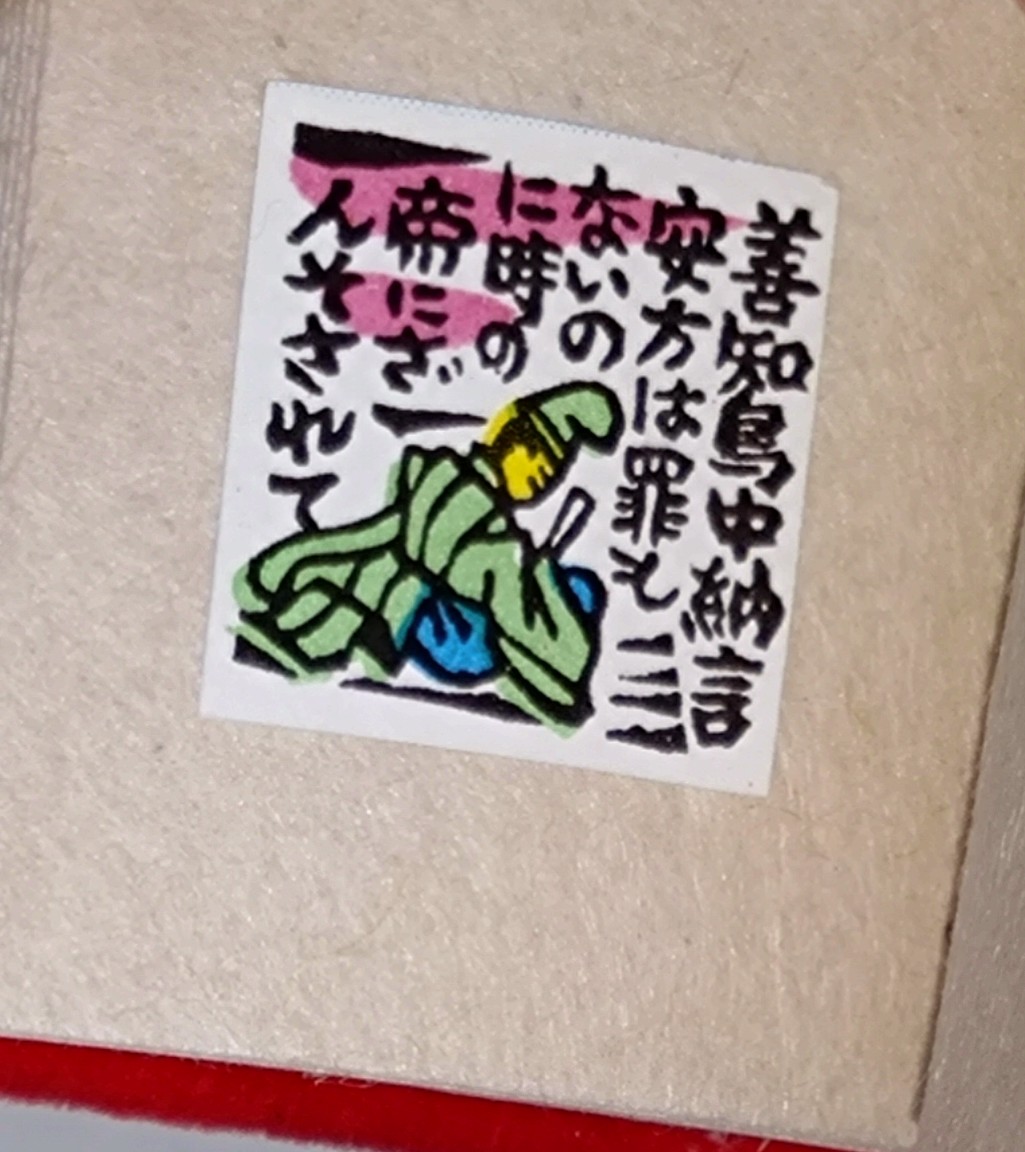 善知鳥中納言
安方は罪も
ないの
に時の
帝にざ
んそされて